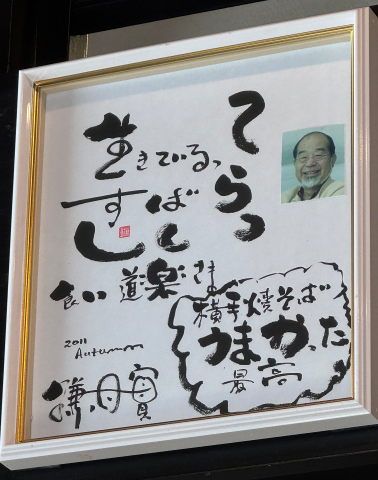 生きているって
すばらしい
食い道楽さま
横手焼そば
うまかった
最高
2011
Autumn
鎌田實